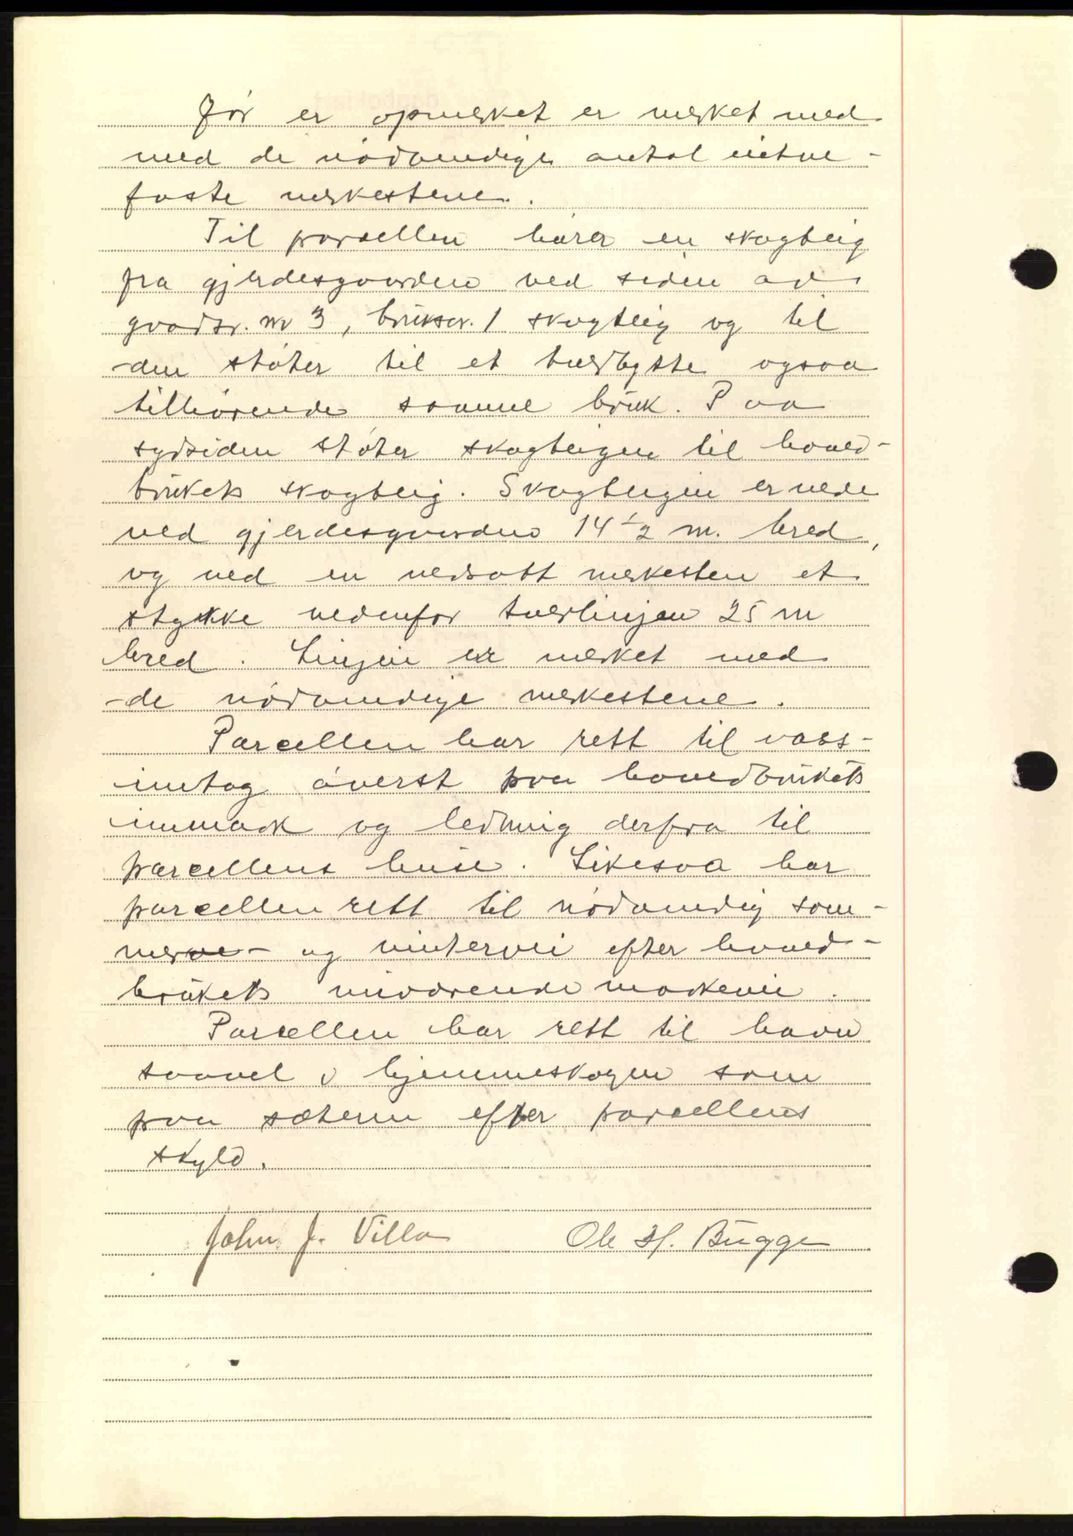 før er opmerket er merket med
med de nødvendige antal
faste merkestene.
Til parsellen hører en skogteig
fra gjerdesgaarden ved siden av
gaardsr. nr 3, bruksnr. 1 skogteig og til
den støter til et ogsaa
tilhørende samme bruk. Paa
sydsiden støter skogteigen til hoved-
brukets skogteig. Skogteigen er nede
ved gjerdesgaarden 14 1/2 m. bred,
og ved en nedsatt merkesten et
stykke nedenfor tverlinjen 25 m
bred. Linjen er merket med
de nødvendige merkestene.
Parcellen har rett til vass-
inntag øverst paa hovedbrukets
innmark og ledning derfra til
parcellens huse. Likesaa har
parcellen rett til nødvendig som-
mer- og vintervei efter hoved-
brukets nuværende markevei.
Parcellen har rett til havn
saavel i hjemmeskogen som
paa sæteren efter parcellens
skyld.
John J. Villa Ole H. Bugge